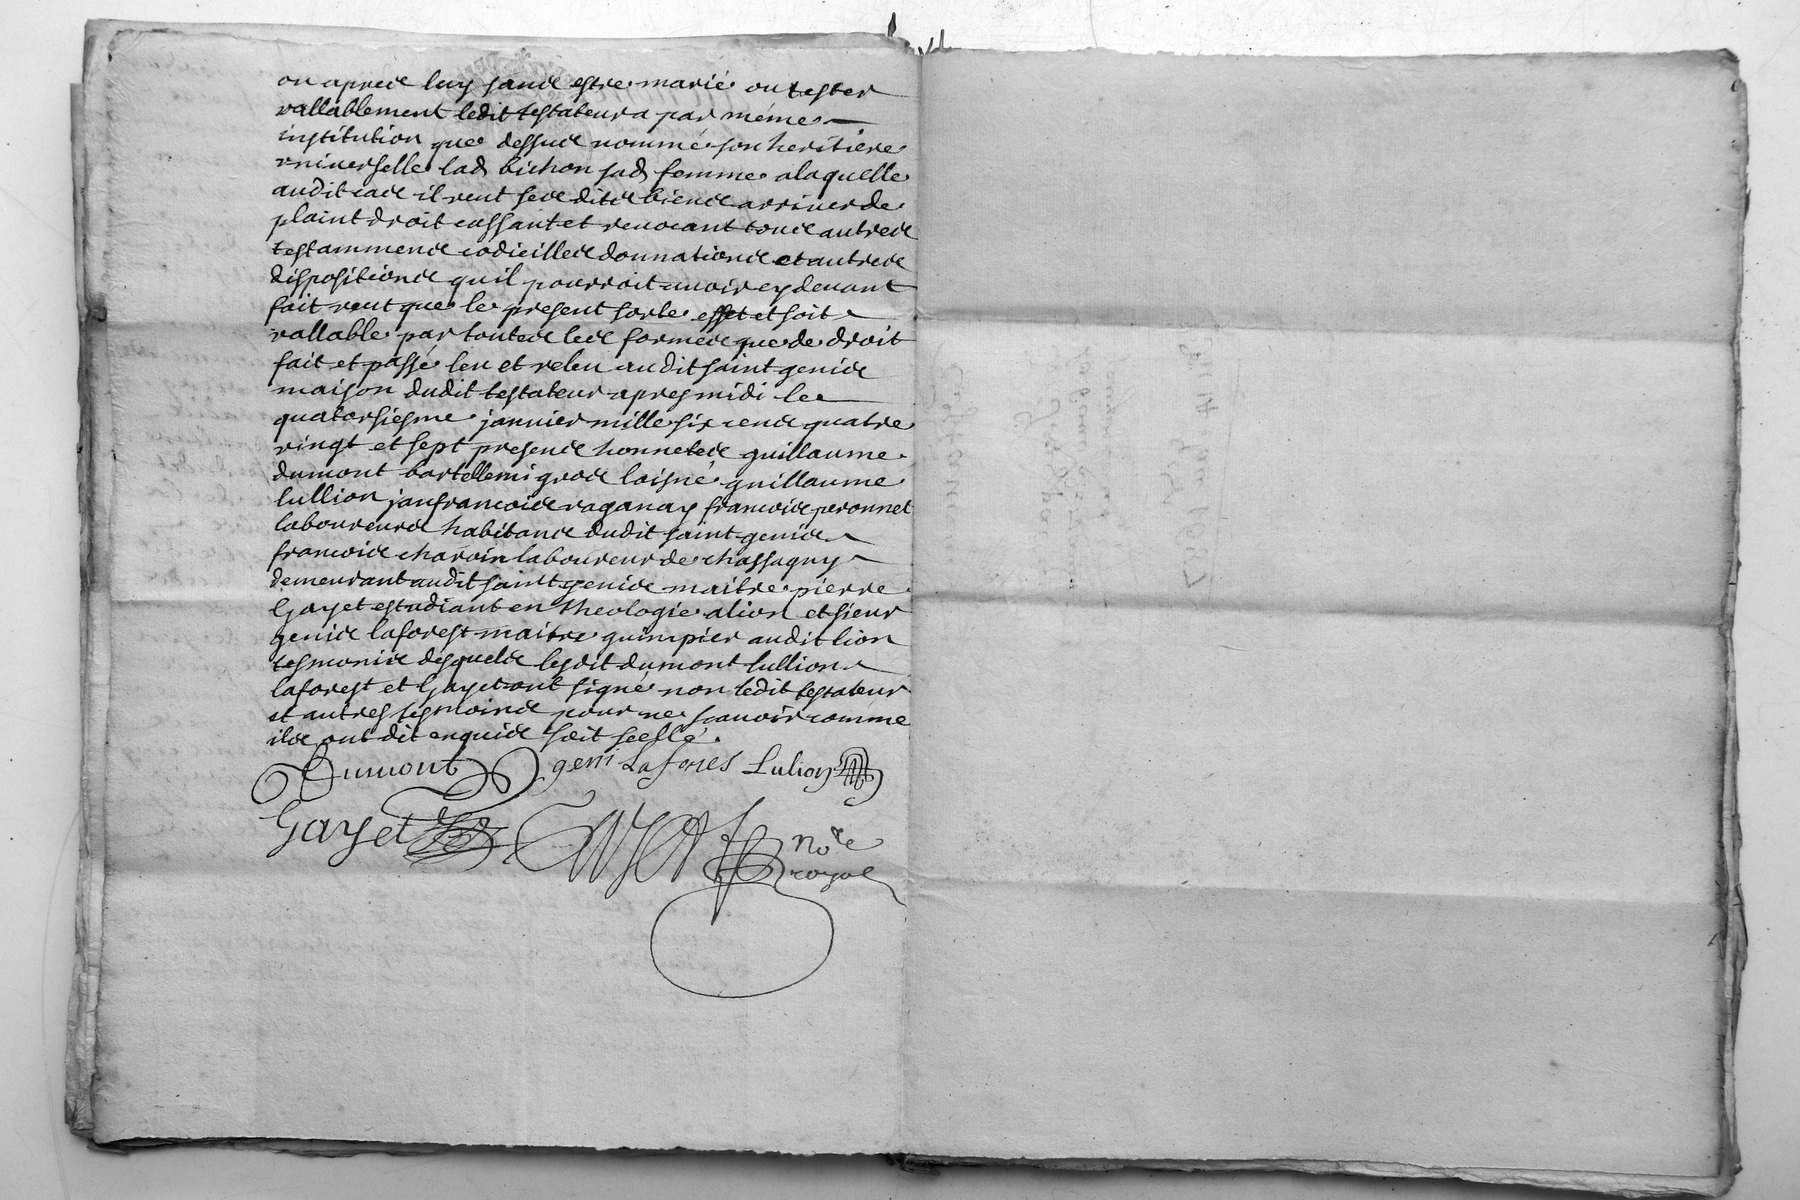 ou apres luy sans estre marié ou tester
vallablement ledit testateur a par même
institution que dessus nommé son heritiere
vniuerselle lad bichon sad femme a laquelle
audit cas il veut sesdits biens arriuer de
plaint droit cassant et reuocant tous autres
testammens codicilles donnations et autres
dispositions quil pourroit auoir cy deuant
fait veut que le present sorte effet et soit
vallable par toutes les formes que de droit
fait et passé leu et releu audit saint genis
maison dudit testateur apres midi le
quatorsiesme januier mille six cens quatre
vingt et sept presens honnetes guillaume
dumont bartellemi gros laisné guillaume
lullion janfrancois raganay francois peronnet
laboureurs habitans dudit saint genis
francois charvin laboureur de chassagny
demeurant audit saint genis maitre pierre
Gayet estudiant en theologie a lion et sieur
genis laforest maitre guimpier audit lion
tesmonis desquels lesdit dumont lullion
laforest et Gayet ont signé non ledit testateur
et autres tesmoins pour ne scauoir comme
ils ont dit enquis soit scellé.
Dumont geni Lafores Lulion
Gayet
no.re
royal